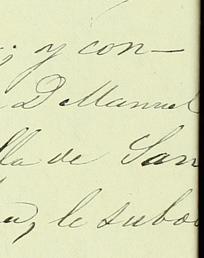 ; y con-
D Manuel
lla de San
a, le subo